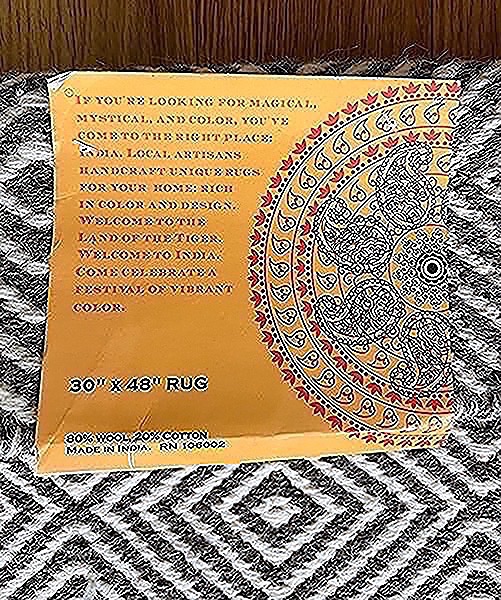 IF YOU'RE LOOKING FOR MAGICAL,
MYSTICAL, AND COLOR, YOU'VE
COME TO THE RIGHT PLACE:
INDIA. LOCAL ARTISANS
HANDCRAFT UNIQUE RUGS
FOR YOUR HOME: RICH
IN COLOR AND DESIGN.
WELCOME TO THE
LAND OF THE TIGER.
WELCOME TO INDIA.
COME CELEBRATE A
FESTIVAL OF VIBRANT
COLOR.
30" X 48" RUG
80% WOOL, 20% COTTON
MADE IN INDIA. RN 106002